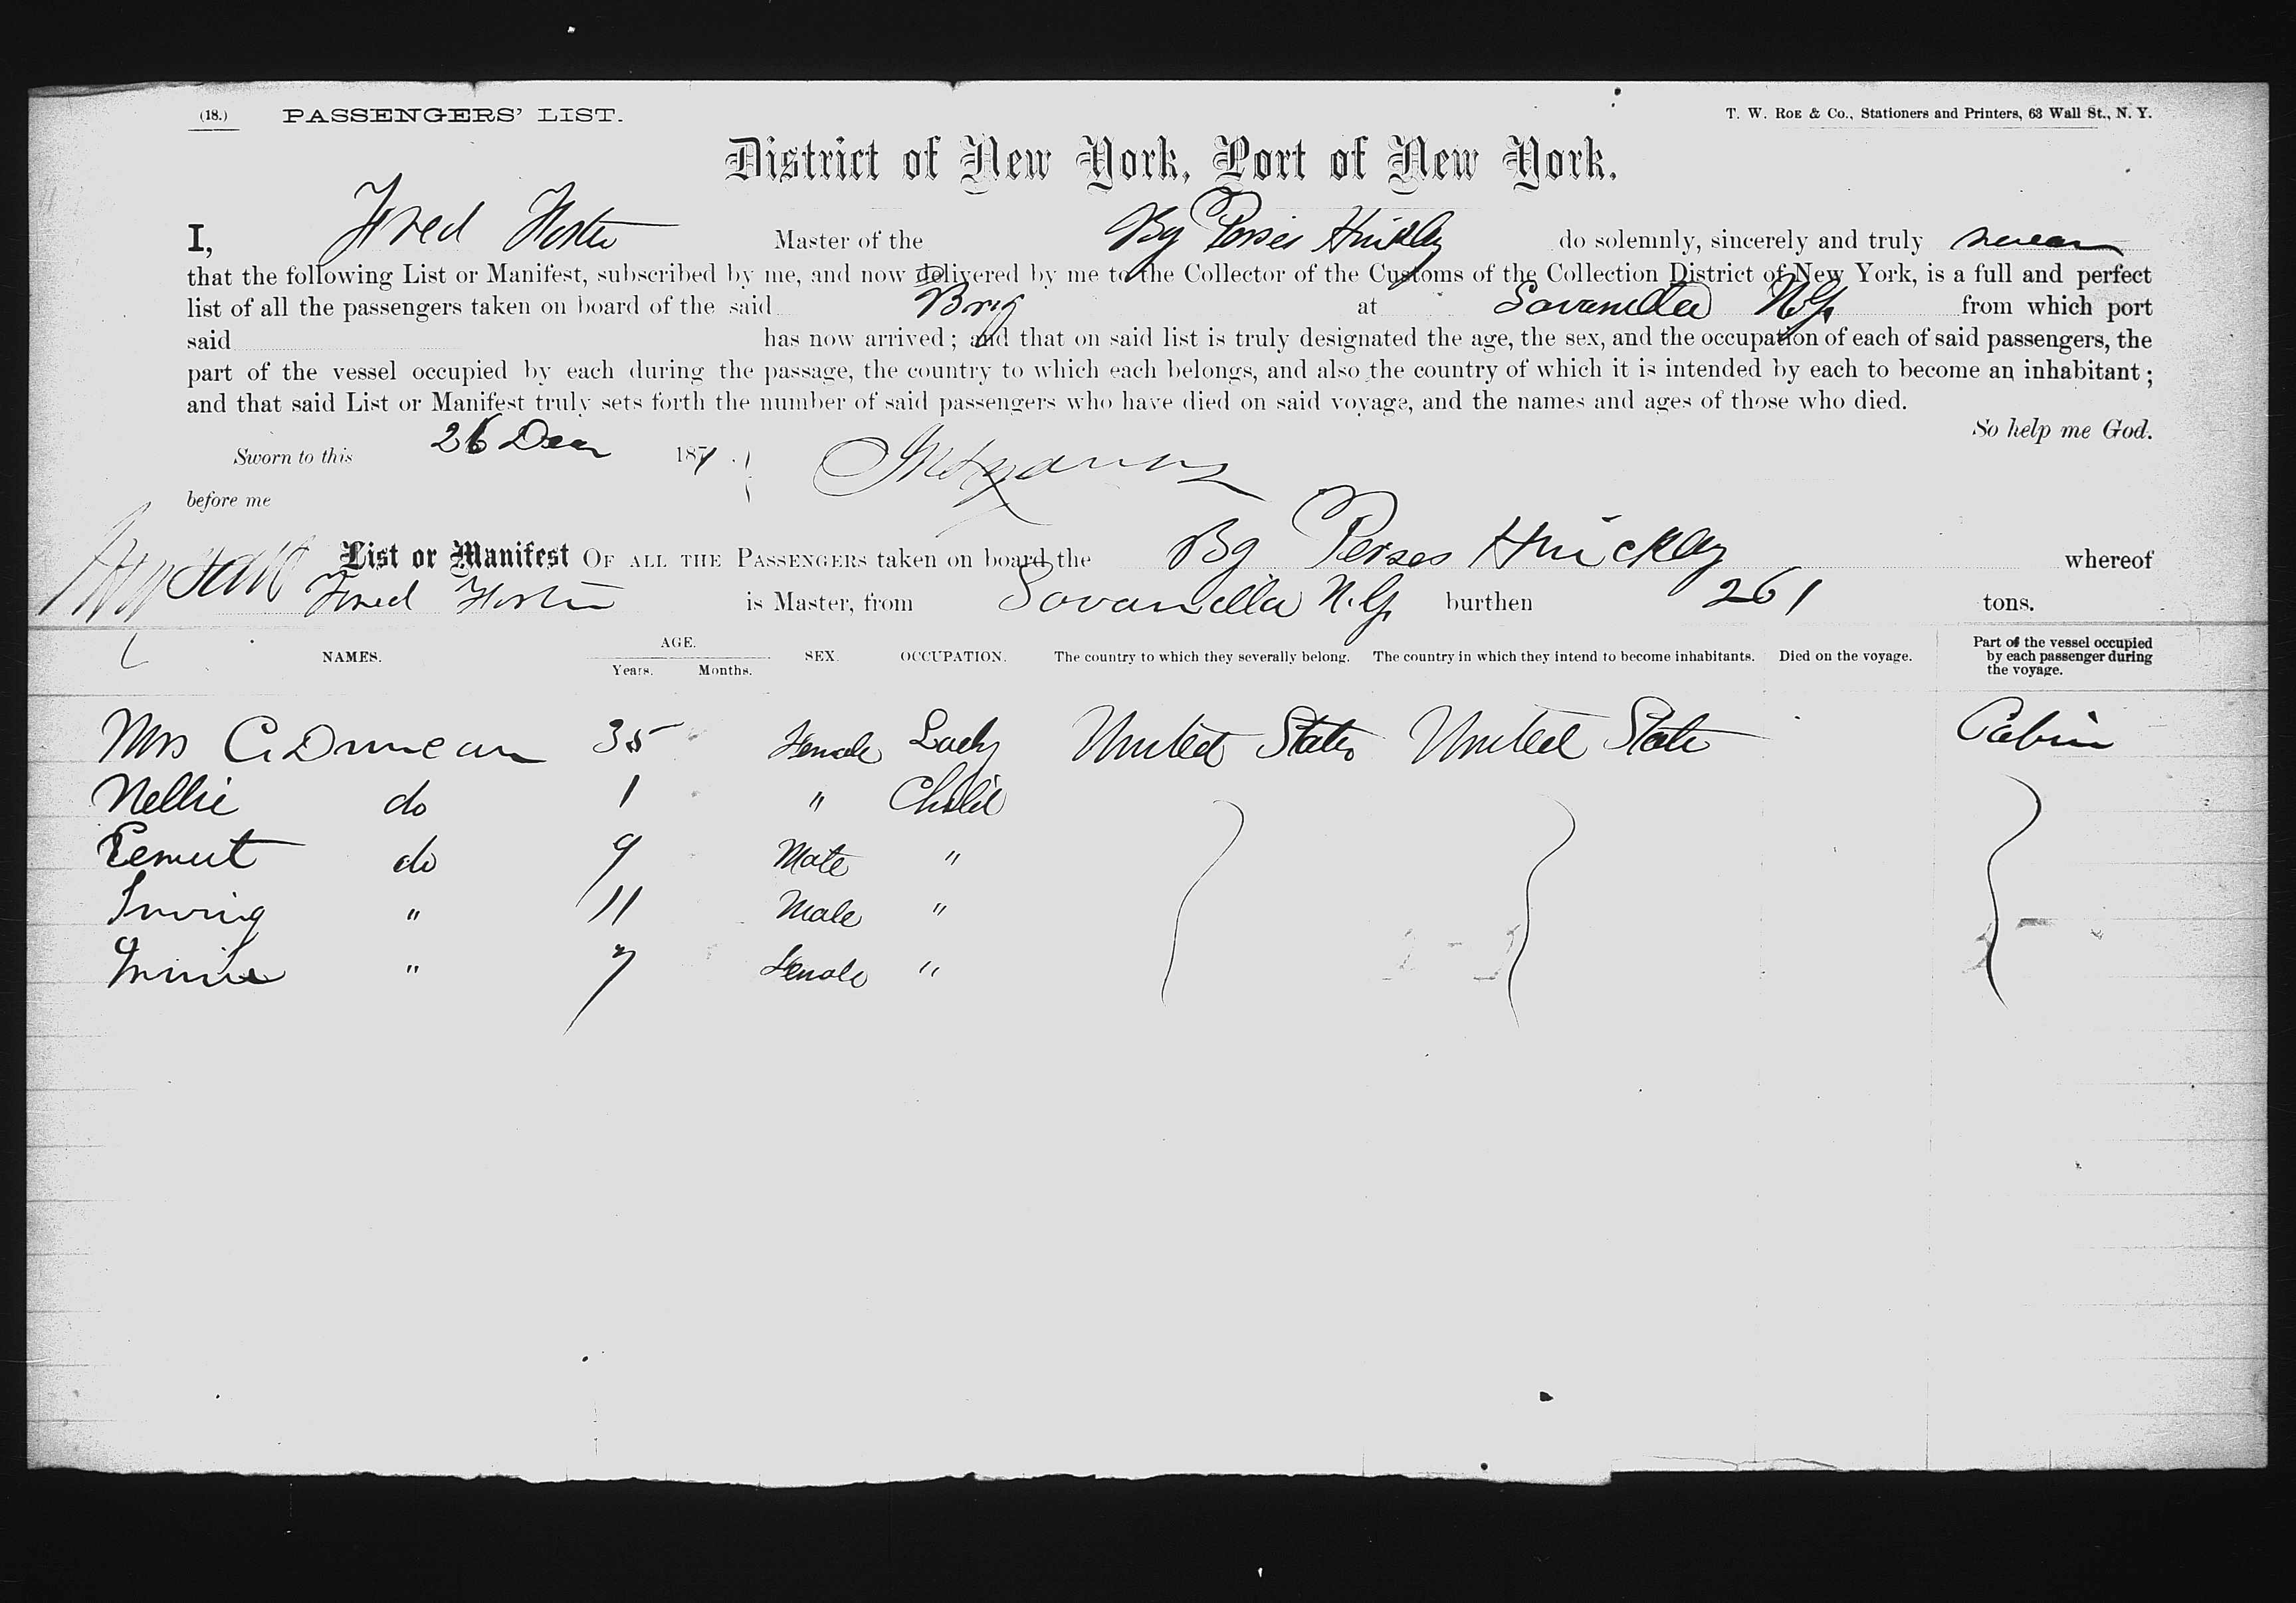 (18.) PASSENGERS' LIST. T. W. Roe & Co., Stationers and Printers, 63 Wall St., N. Y.
District of New York, Port of New York.
I, Fred Master of the Bg Perses Hinckley do solemnly, sincerely and truly swear
that the following List or Manifest, subscribed by me, and now delivered by me to the Collector of the Customs of the Collection District of New York, is a full and perfect
list of all the passengers taken on board of the said Brig at Savanilla N.G. from which port
said has now arrived; and that on said list is truly designated the age, the sex, and the occupation of each of said passengers, the
part of the vessel occupied by each during the passage, the country to which each belongs, and also the country of which it is intended by each to become an inhabitant;
and that said List or Manifest truly sets forth the number of said passengers who have died on said voyage, and the names and ages of those who died.
So help me God.
Sworn to this 26 187
before me
List or Manifest OF ALL THE PASSENGERS taken on board the Bg Perses Hinckley whereof
Fred is Master, from Savanilla N.G. burthen 261 tons.
NAMES. AGE. Years. Months. SEX. OCCUPATION. The country to which they severally belong. The country in which they intend to become inhabitants. Died on the voyage. Part of the vessel occupied by each passenger during the voyage.
Mrs C. Duncan 35 Female Lady United States United State Cabin
Nellie do 1 " Child
do 9 Male "
Irving " 11 Male "
" 7 Female "